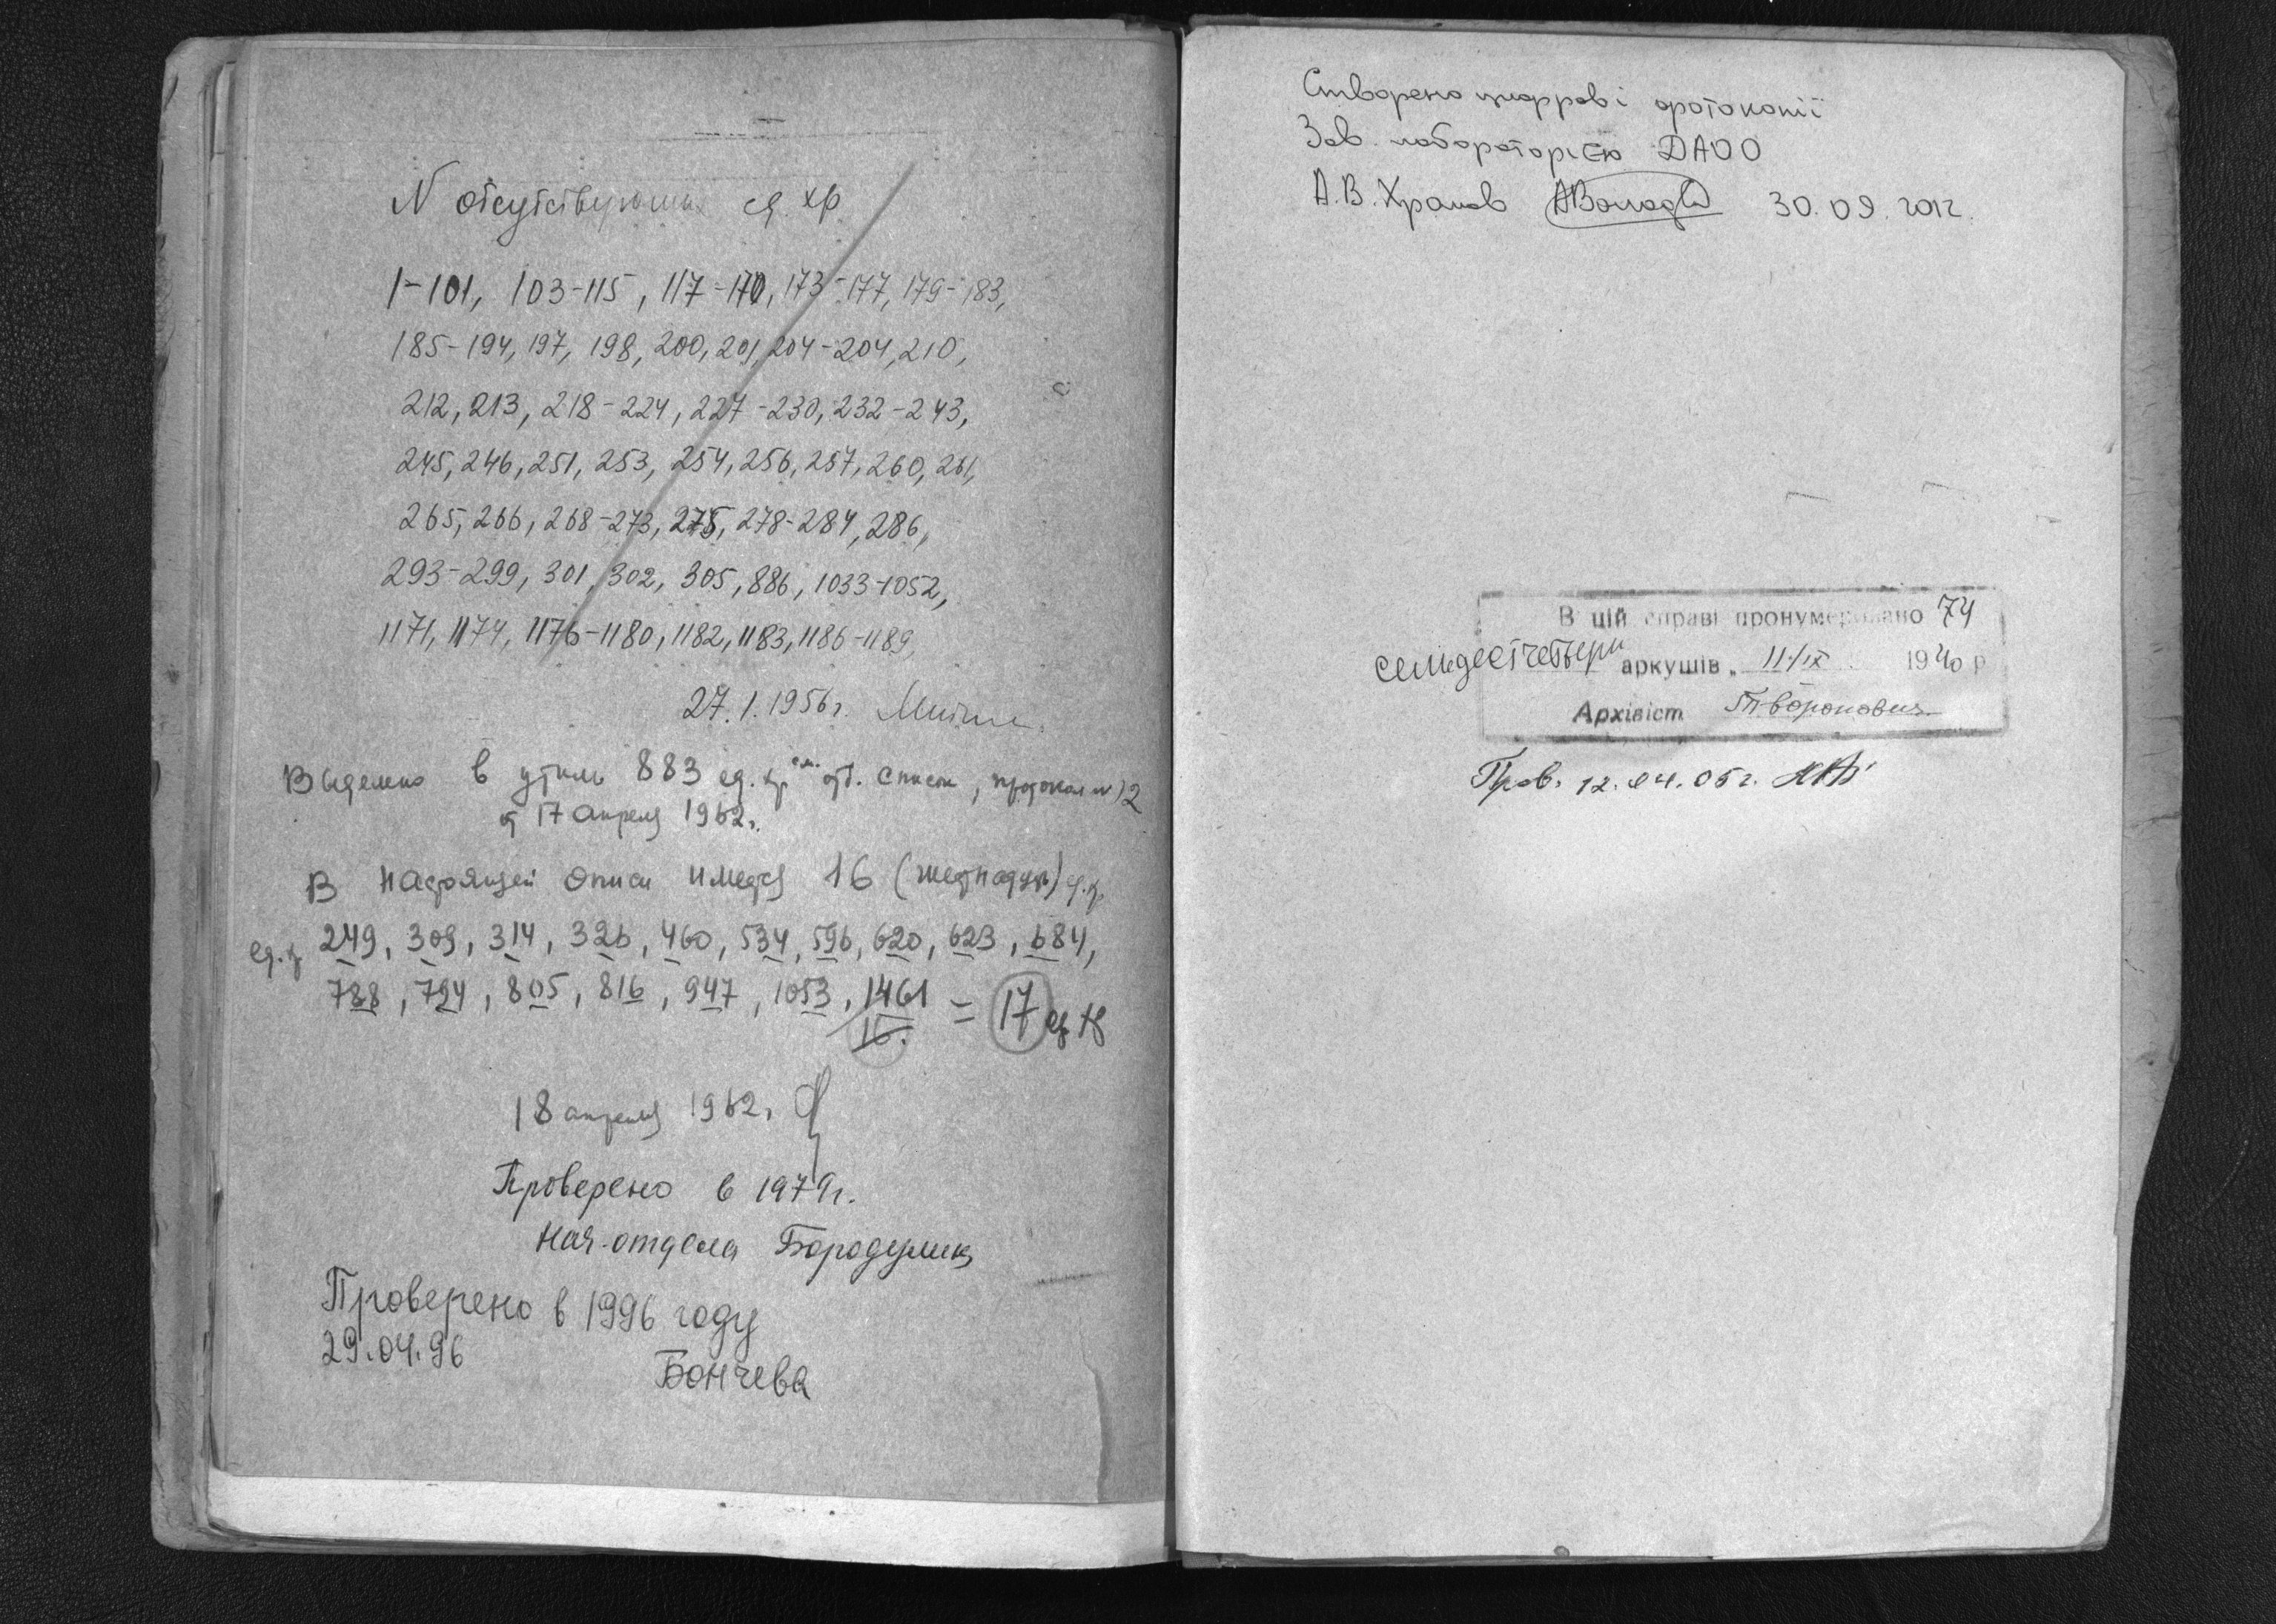 N отсутствующих ед. хр
1-101, 103-115, 117-170, 173-177, 179-183,
185-194, 197, 198, 200, 201, 204-204, 210,
212, 213, 218-224, 227-230, 232-243,
245, 246, 251, 253, 254, 256, 257, 260, 261,
265, 266, 268-273, 275, 278-284, 286,
293-299, 301, 302, 305, 886, 1033-1052,
1171, 1174, 1176-1180, 1182, 1183, 1186-1189,
27.1.1956г.
Выделено в утиль 883 ед. хр см. отд. список, протокол N 12
от 17 апреля 1962г.
В настоящей описи имеется 16 (шестнадцать) ед. хр.
ед. х. 249, 309, 314, 326, 460, 534, 596, 620, 623, 684,
788, 794, 805, 816, 947, 1053, 1461 = 17 ед хр
16.
18 апреля 1962г.
Проверено в 1979г.
Нач. отдела
Проверено в 1996 году
29.04.96
Бончева
Створено цифрові фотокопії
Зав. лабораторією ДАОО
А.В. Храмов 30.09.2012.
В цій справі пронумеровано 74
семдесят четыри аркушів „ 11/IX 1940 р
Архівіст
Пров. 12.04.05г.